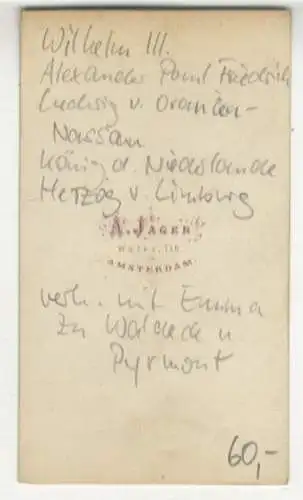 Wilhelm III.
Alexander Paul Friedrich
Ludwig v. Oranien-
Nassau
König d. Niederlande
Herzog v. Limburg
A. JAGER
AMSTERDAM
verh. mit Emma
zu Waldeck u
Pyrmont
60,-